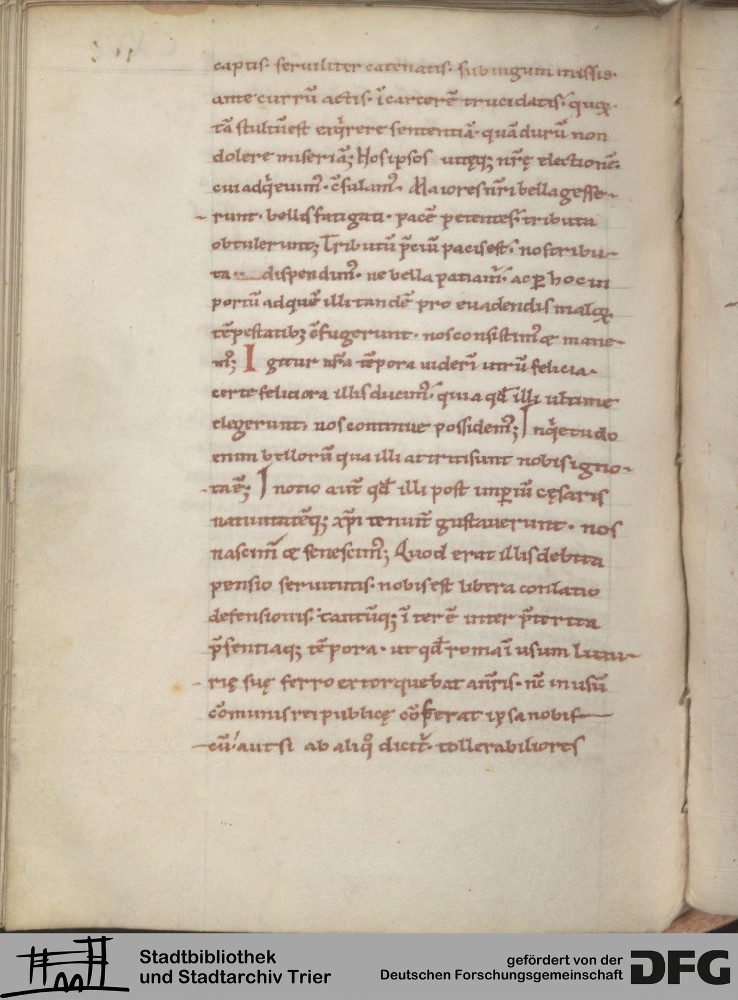 captis· seruiliter catenatis· sub iugum missis·
ante currū actis· ī carcerē trucidatis· quoꝝ·
tā stultū est exqͥrere sententiā· quā durū non
dolere miseriā; Hos ipsos utiqꝫ nr̄ę electionē·
cui adqͥeuimꝰ· c̄sulamꝰ· Maiores nr̄i bella gesse-
runt· bellis fatigati· pacē petentes· tributa
obtulerunt; Tributū p̄ciū pacis est· nos tribu-
ta dispendimꝰ· ne bella patiam̄· ac ꝑ hoc in
portū ad quē illi tandē pro euadendis maloꝝ
tēpestatibꝫ c̄fugerunt· nos consistimꝰ & mane-
mꝰ; Igitur nr̄a tēpora uiderī utrū felicia·
certe feliciora illis ducimꝰ· quia qd̄ illi ultime
elegerunt, nos continue possidemꝰ; Inqͥetudo
enim bellorū qua illi attriti sunt nobis igno-
ta ē; Inotio aut̄ qd̄ illi post imperiū cęsaris
natiuitatēqꝫ xp̄i tenuit̄ gustauerunt· nos
nascim̄ & senescimꝰ; Quod erat illis debita
pensio seruitutis· nobis est libera conlatio
defensionis· tantūqꝫ īter ē inter p̄terita
p̄sentiaqꝫ tēpora· ut qd̄ roma ī usum luxu-
rię suę ferro extorquebat a nr̄is· nc̄ in usū
cōmunis rei publicę cōferat ipsa nobis-
cū· aut si ab aliqͦ dicit̄· tollerabiliores
Stadtbibliothek
und Stadtarchiv Trier
gefördert von der
Deutschen Forschungsgemeinschaft
DFG